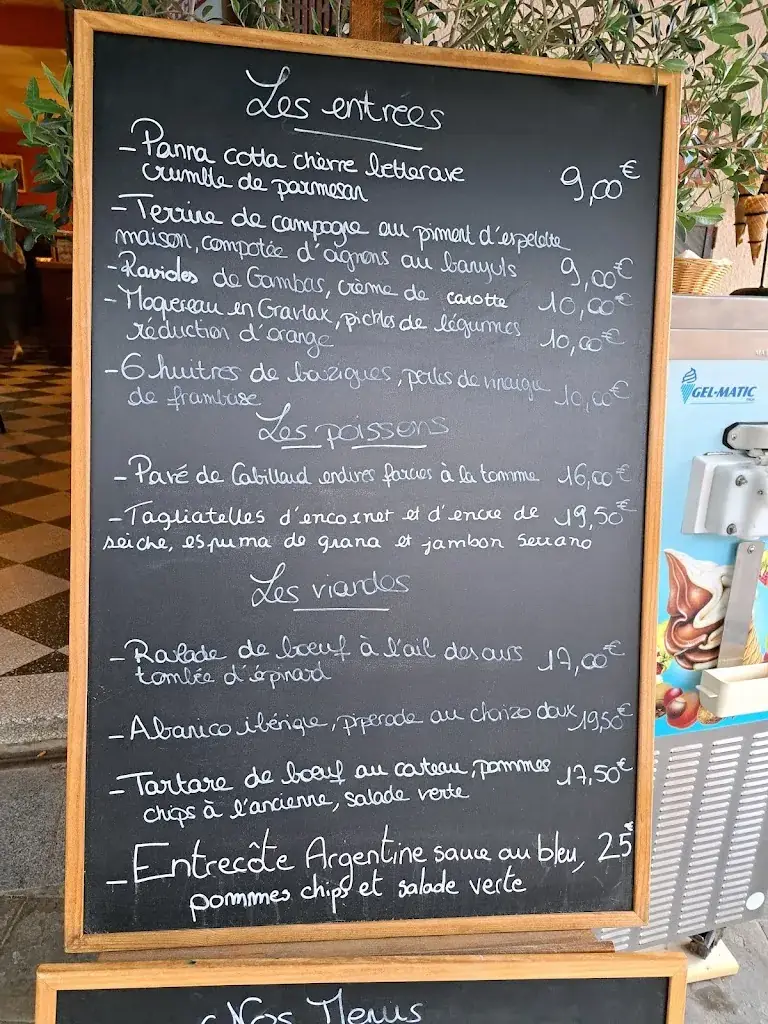 Les entrées
- Panna cotta chèvre betterave 9,00€
crumble de parmesan
- Terrine de campagne au piment d'espelette
maison, compotée d'oignons au banyuls 9,00€
- Ravioles de Gambas, crème de carotte 10,00€
- Maquereau en Gravlax, pickles de légumes
réduction d'orange 10,00€
- 6 huitres de bouzigues, perles de vinaigre
de framboise 10,00€
Les poissons
- Pavé de Cabillaud endives farcies à la tomme 16,00€
- Tagliatelles d'encornet et d'encre de 19,50€
seiche, espuma de grana et jambon serrano
Les viandes
- de boeuf à l'ail des ours 17,00€
tombée d'épinard
- Abanico ibérique, piperade au chorizo doux 19,50€
- Tartare de boeuf au couteau, pommes 17,50€
chips à l'ancienne, salade verte
- Entrecôte Argentine sauce au bleu, 25€
pommes chips et salade verte
Nos Menus
GEL-MATIC